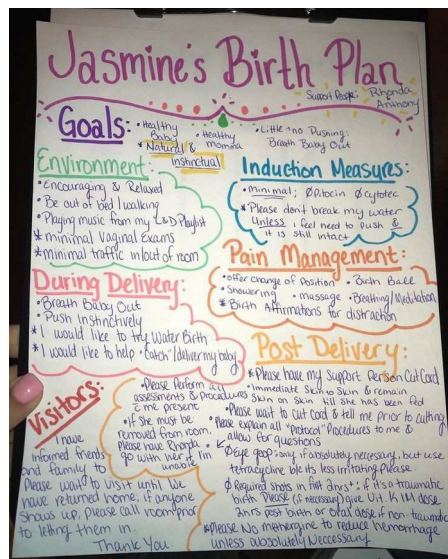 Jasmine's Birth Plan
Support People: Rhonda
Anthony
Goals:
• Healthy
Baby
• Healthy
momma
• Little → no Pushing:
Breath Baby Out
* Natural &
instinctual
Environment:
• Encouraging & Relaxed
• Be out of bed / walking
• Playing music from my L&D Playlist
* minimal Vaginal Exams
* minimal traffic in/out of room
Induction Measures:
• Minimal; Ø Pitocin Ø Cytotec
* Please don't break my water
Unless i feel need to push &
it is still intact
Pain Management:
• offer change of Position • Birth Ball
• Showering • massage • Breathing/Meditation
* Birth Affirmations for distraction
During Delivery:
• Breath Baby Out
• Push Instinctively
* I would like to try Water Birth
* I would like to help "Catch"/deliver my baby
Post Delivery:
* Please have my Support Person Cut Cord
• Immediate Skin to Skin & remain
Skin on Skin till she has been fed
• Please wait to cut cord & tell me prior to cutting
• Please explain all "Protocol" Procedures to me &
allow for questions
Ø Eye goop; only if absolutely necessary, but use
tetracycline b/c its less irritating please.
Ø Required shots in first 2hrs*: if it's a traumatic
birth Please (if necessary) give Vit. K IM dose
2hrs post birth or oral dose if non-traumatic
* Please No methergine to reduce hemorrhage
unless absolutely Neccessary
• Please Perform all
assessments & Procedures
c me present
• if She must be
removed from room,
Please have Rhonda
go with her if I'm
unable
Visitors:
I have
Informed friends
and family to
Please wait to visit until we
have returned home, if anyone
Shows up, please call room prior
to letting them in.
Thank You